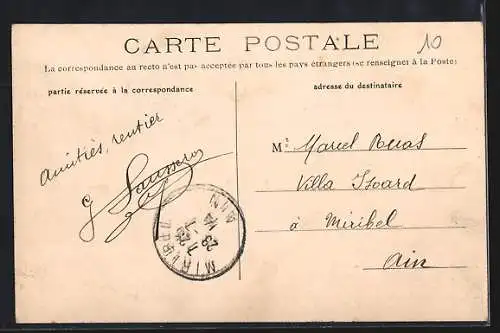 CARTE POSTALE
10
La correspondance au recto n'est pas acceptée par tous les pays étrangers (se renseigner à la Poste)
partie réservée à la correspondance
adresse du destinataire
Amitiés, rentier
G
Mr Marcel
Villa Izoard
à Miribel
Ain
MIRIBEL
AIN